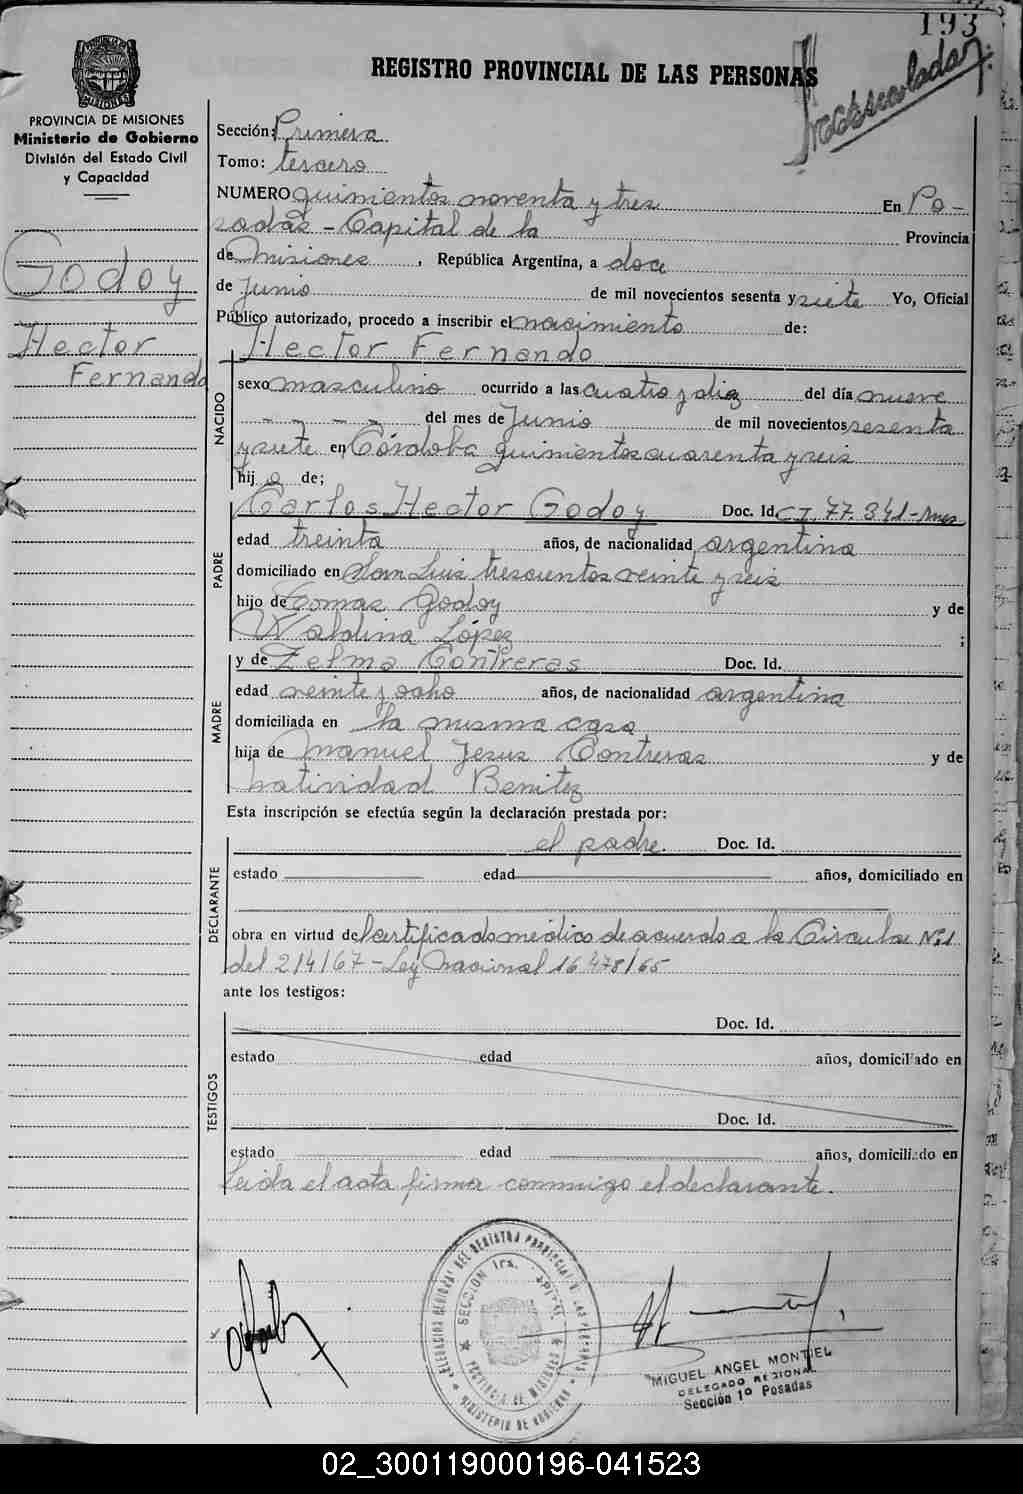 193
REGISTRO PROVINCIAL DE LAS PERSONAS
PROVINCIA DE MISIONES
Ministerio de Gobierno
División del Estado Civil
y Capacidad
Godoy
Hector
Fernando
Sección: Primera
Tomo: tercero
NUMERO quinientos noventa y tres En Po-
sadas - Capital de la Provincia
de Misiones, República Argentina, a doce
de Junio de mil novecientos sesenta y siete Yo, Oficial
Público autorizado, procedo a inscribir el nacimiento de:
Hector Fernando
NACIDO
sexo masculino ocurrido a las cuatro y diez del día nueve
- - - - del mes de Junio de mil novecientos sesenta
y siete en Córdoba quinientos cuarenta y seis
hijo de;
PADRE
Carlos Hector Godoy Doc. Id. C.I. 77.841-Mnes
edad treinta años, de nacionalidad argentina
domiciliado en San Luis trescientos veinte y seis
hijo de Tomas Godoy y de
Waldina López ;
MADRE
y de Zelma Contreras Doc. Id.
edad veinte y ocho años, de nacionalidad argentina
domiciliada en la misma casa
hija de Manuel Jesus Contreras y de
Natividad Benitez
Esta inscripción se efectúa según la declaración prestada por:
DECLARANTE
el padre. Doc. Id.
estado edad años, domiciliado en
obra en virtud del certificado médico de acuerdo a la Circular Nº 1
del 2/4/67 - Ley Nacional 16.478/65
ante los testigos:
TESTIGOS
Doc. Id.
estado edad años, domiciliado en
Doc. Id.
estado edad años, domiciliado en
Leida el acta firma conmigo el declarante.
DELEGACION REGIONAL DEL REGISTRO PROVINCIAL DE LAS PERSONAS
SECCION 1ra. CAPITAL
PROVINCIA DE MISIONES
MINISTERIO DE GOBIERNO
MIGUEL ANGEL MONTIEL
DELEGADO REGIONAL
Sección 1º Posadas
02_300119000196-041523